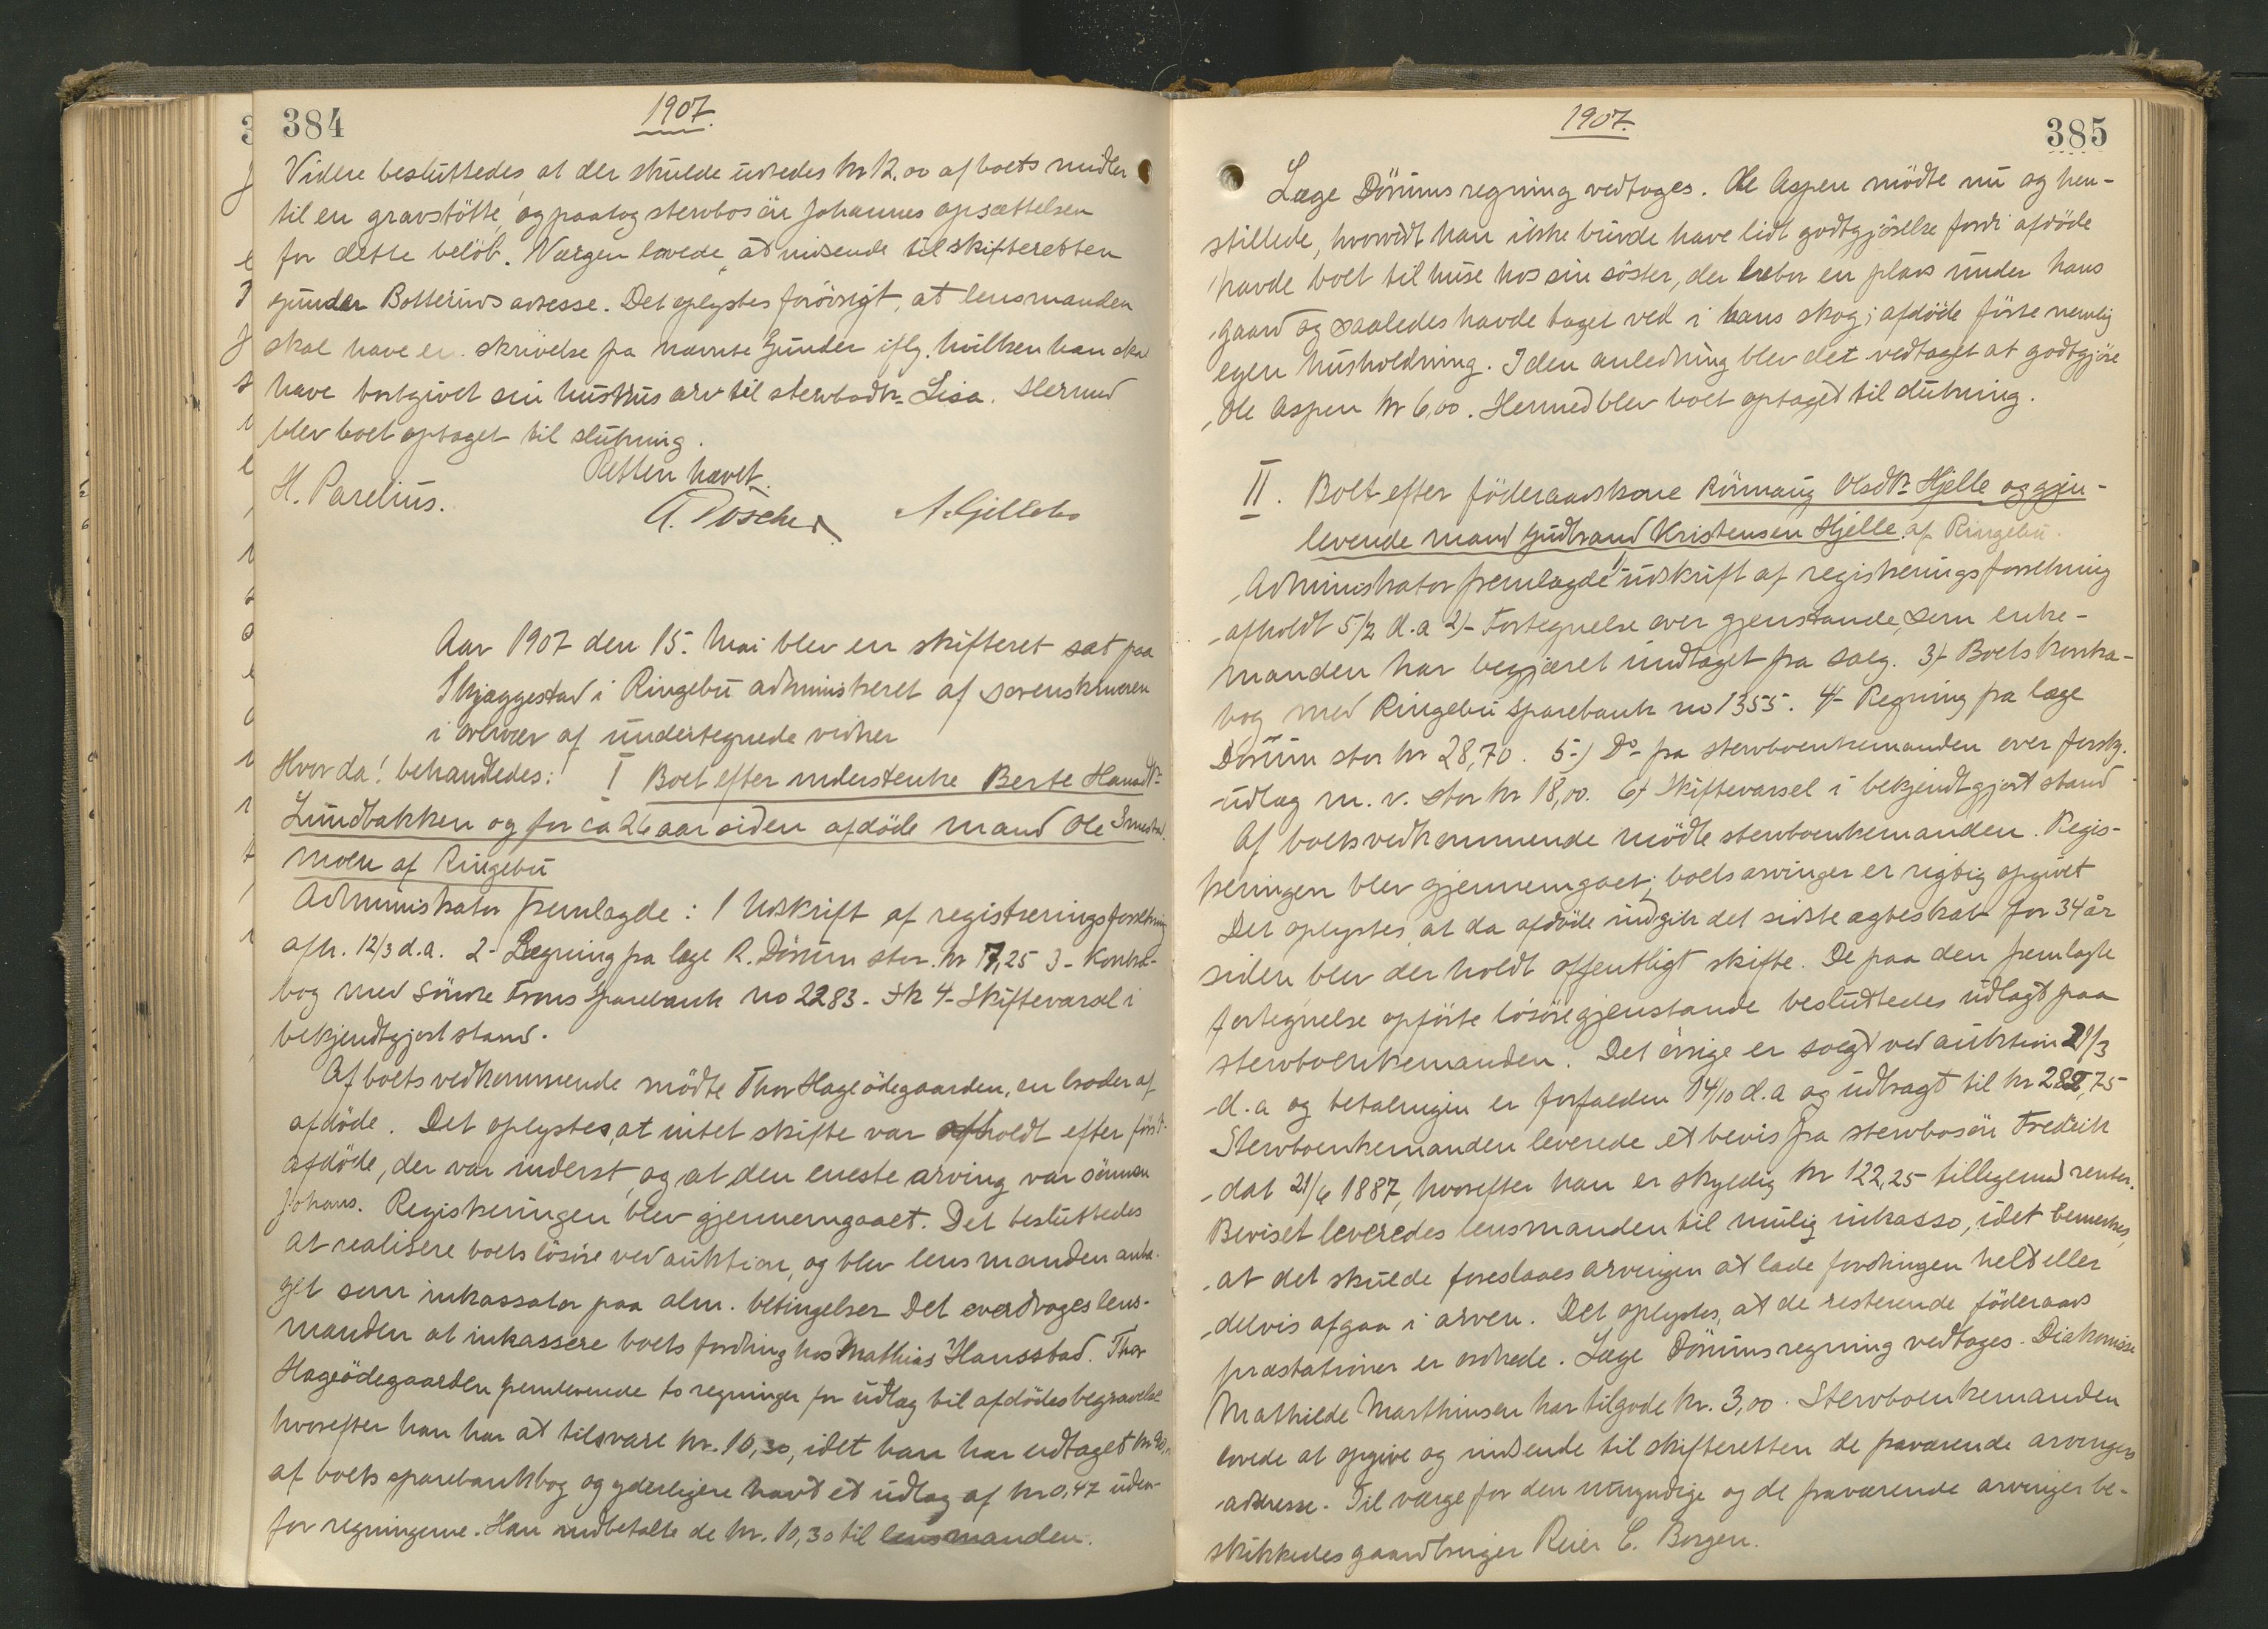 384
1907.
Videre besluttedes, at der skulde udredes kr 12.00 af boets midler
til en gravstötte, og paatog sterbosön Johannes opsættelsen
for dette belöb. Værgen lovede at indsende til skifteretten
Gunder Botterums adresse. Det oplystes forövrigt, at lensmanden
skal have en skrivelse fra nævnte Gunder iflg. hvilken han skal
have bortgivet sin hustrus arv til sterbodtr. Lisa. Hermed
blev boet optaget til slutning.
Retten hævet.
H. Parelius.
Aar 1907 den 15. Mai blev en skifteret sat paa
Skjæggestad i Ringebu administreret af sorenskriveren
i overvær af undertegnede vidner
Hvor da! behandledes: I Boet efter inderstenke Berte Hansdtr.
Lundbakken og for ca 26 aar siden afdöde mand Ole
moen af Ringebu
Administrator fremlagde: 1 Udskrift af registreringsforretning
afh. 12/3 d.a. 2- Regning fra læge R. Dörum stor kr 7,25 3- Kontra-
bog med Söndre Frons Sparebank no 2283. 4- Skiftevarsel i
bekjendtgjort stand.
Af boets vedkommende mödte Thor Hageödegaarden, en broder af
afdöde. Det oplystes, at intet skifte var afholdt efter först-
afdöde, der var inderst, og at den eneste arving var sönnen
Johans. Registreringen blev gjennemgaaet. Det besluttedes
at realisere boets lösöre ved auktion, og blev lensmanden anta-
get som inkassator paa alm. betingelser Det overdroges lens-
manden at inkassere boets fordring hos Mathias Hansstad. Thor
Hageödegaarden fremleverede to regninger for udlæg til afdödes begravelse
hvorefter han har at tilsvare kr. 10,30, idet han har udtaget kr
af boets sparebankbog og yderligere havt et udlæg af kr 0,47 uden-
for regningerne. Han indbetalte de kr. 10,30 til lensmanden.
1907.
385
Læge Dörums regning vedtoges. Ole Aspen mödte nu og hen-
stillede, hvorvidt han ikke burde have lidt godtgjörelse fordi afdöde
havde boet til huse hos sin söster, der bebor en plads under hans
gaard og saaledes havde taget ved i hans skog; afdöde förte nemlig
egen husholdning. I den anledning blev det vedtaget at godtgjöre
Ole Aspen kr 6,00. Hermed blev boet optaget til slutning.
II. Boet efter föderaadskone Rönnaug Olsdtr. Hjelle og gjen-
levende mand Gudbrand Kristensen Hjelle af Ringebu.
Administrator fremlagde 1- udskrift af registreringsforretning
afholdt 5/2 d.a 2)- Fortegnelse over gjenstande, som enke-
manden har begjæret undtaget fra salg. 3)- Boets kontra-
bog med Ringebu Sparebank no 1355. 4)- Regning fra læge
Dörum stor kr 28,70. 5-) Do- fra sterboenkemanden over forskj.
udlæg m. v. stor kr 18,00. 6)- Skiftevarsel i bekjendtgjort stand
Af boets vedkommende mödte sterboenkemanden. Regis-
treringen blev gjennemgaaet; boets arvinger er rigtig opgivet
Det oplystes, at da afdöde indgik det sidste ægteskab for 34 år
siden blev der holdt offentligt skifte. De paa den fremlagte
fortegnelse opförte lösöregjenstande besluttedes udlagt paa
sterboenkemanden. Det övrige er solgt ved auktion 21/3
d.a og betalingen er forfalden 14/10 d.a og udbragt til kr 282,75
Sterboenkemanden leverede et bevis fra sterbosön Fredrik
dat 21/6 1887, hvorefter han er skyldig kr 122,25 tilligemed renter.
Beviset leveredes lensmanden til mulig inkasso, idet bemerkes,
at det skulde foreslaaes arvingen at lade fordringen helt eller
delvis afgaa i arven. Det oplystes, at de resterende föderaads
præstationer er ordnede. Læge Dörums regning vedtoges. Diakonisse
Mathilde Marthinsen har tilgode kr. 3,00. Sterboenkemanden
lovede at opgive og indsende til skifteretten de fraværende arvingers
adresse. Til værge for den umyndige og de fraværende arvinger be-
skikkedes gaardbruger Reier C. Borgen.